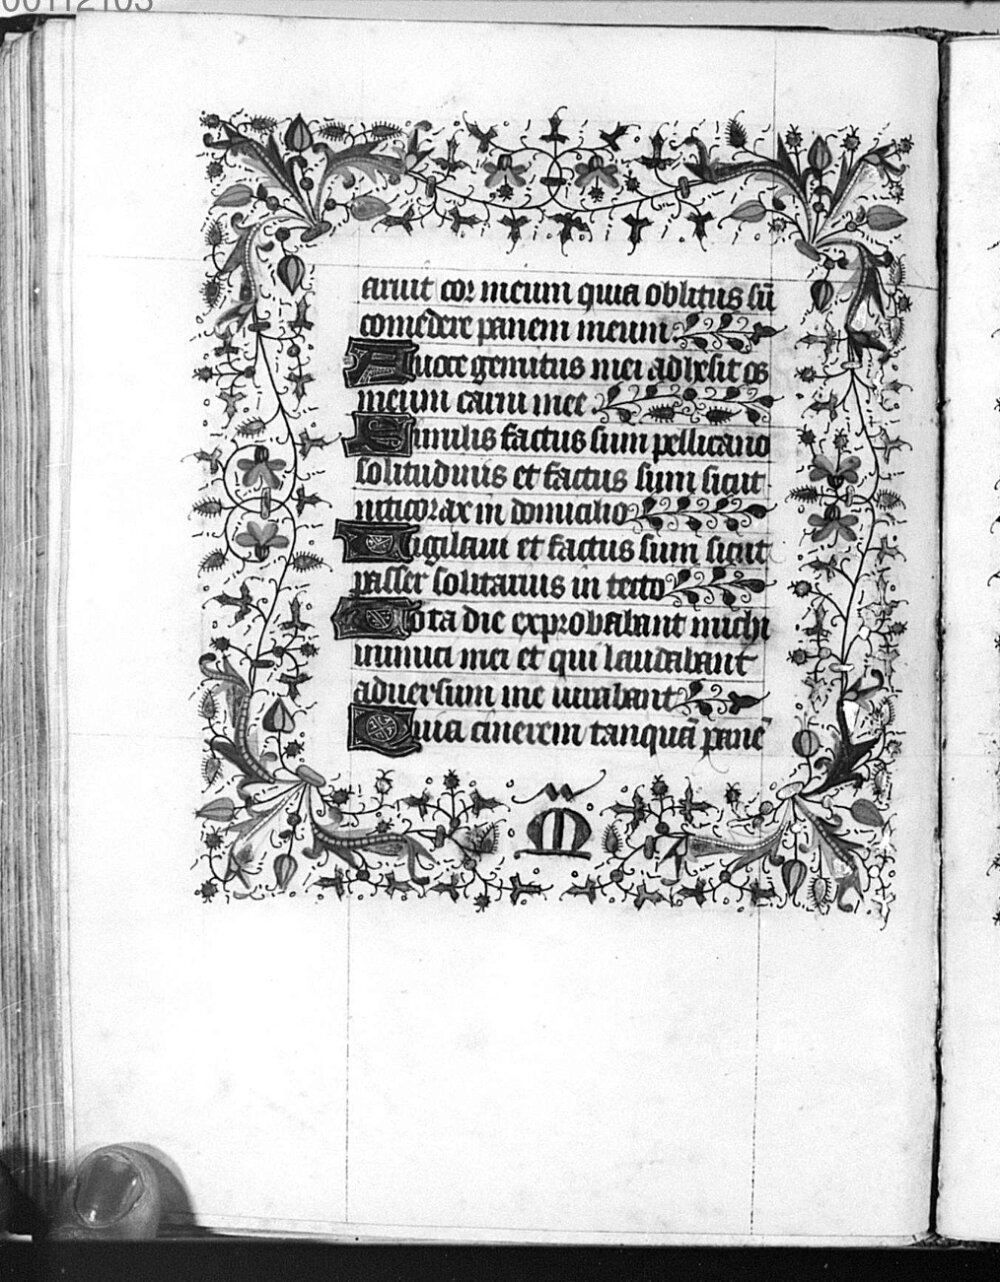 00112103
aruit cor meum quia oblitus sū
comedere panem meum.
A uoce gemitus mei adhesit os
meum carni mee.
Similis factus sum pellicano
solitudinis et factus sum sicut
niticorax in domicilio
Vigilaui et factus sum sicut
passer solitarius in tecto
Tota die exprobabant michi
inimici mei et qui laudabant
aduersum me iurabant
Quia cinerem tanquā panē
M